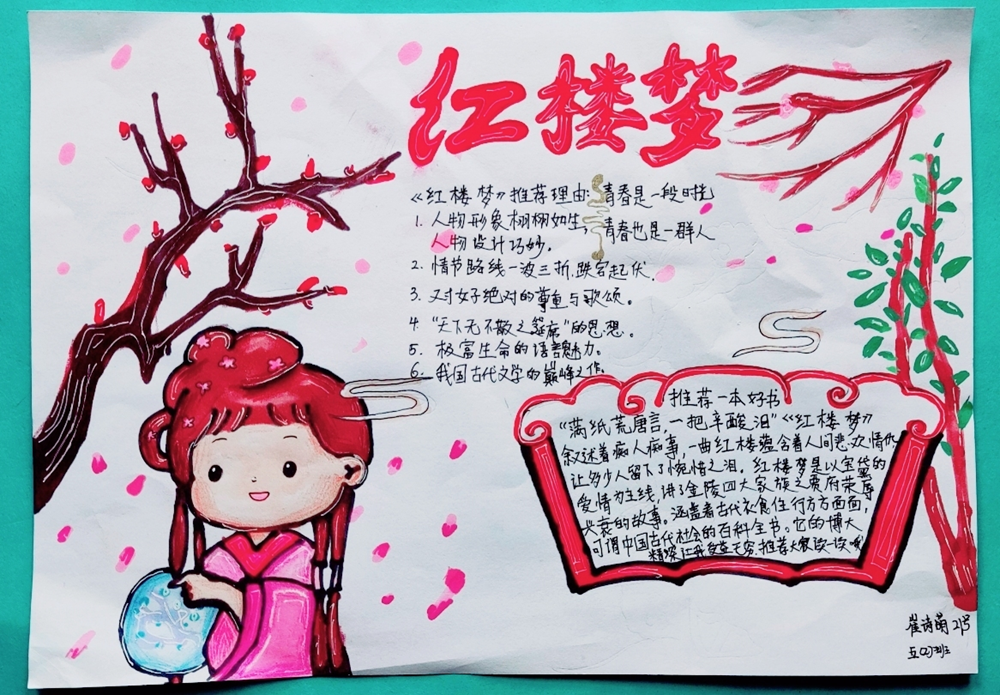 红楼梦
《红楼梦》推荐理由: 青春是一段时光
1. 人物形象栩栩如生, 青春也是一群人
人物设计巧妙。
2. 情节路线一波三折,跌宕起伏.
3. 对女子绝对的尊重与歌颂。
4. “天下无不散之筵席”的思想。
5. 极富生命的语言魅力。
6. 我国古代文学的巅峰之作。
推荐一本好书
“满纸荒唐言,一把辛酸泪”《红楼梦》
叙述着痴人痴事,一曲红楼蕴含着人间悲欢情仇
让多少人留下了惋惜之泪,红楼梦是以宝黛的
爱情为主线,讲了金陵四大家族之贾府荣辱
兴衰的故事。涵盖着古代衣食住行方方面面,
可谓中国古代社会的百科全书。它的博大
精深让我受益无穷,推荐大家读一读哦
崔诗萌 21号
五(2)班